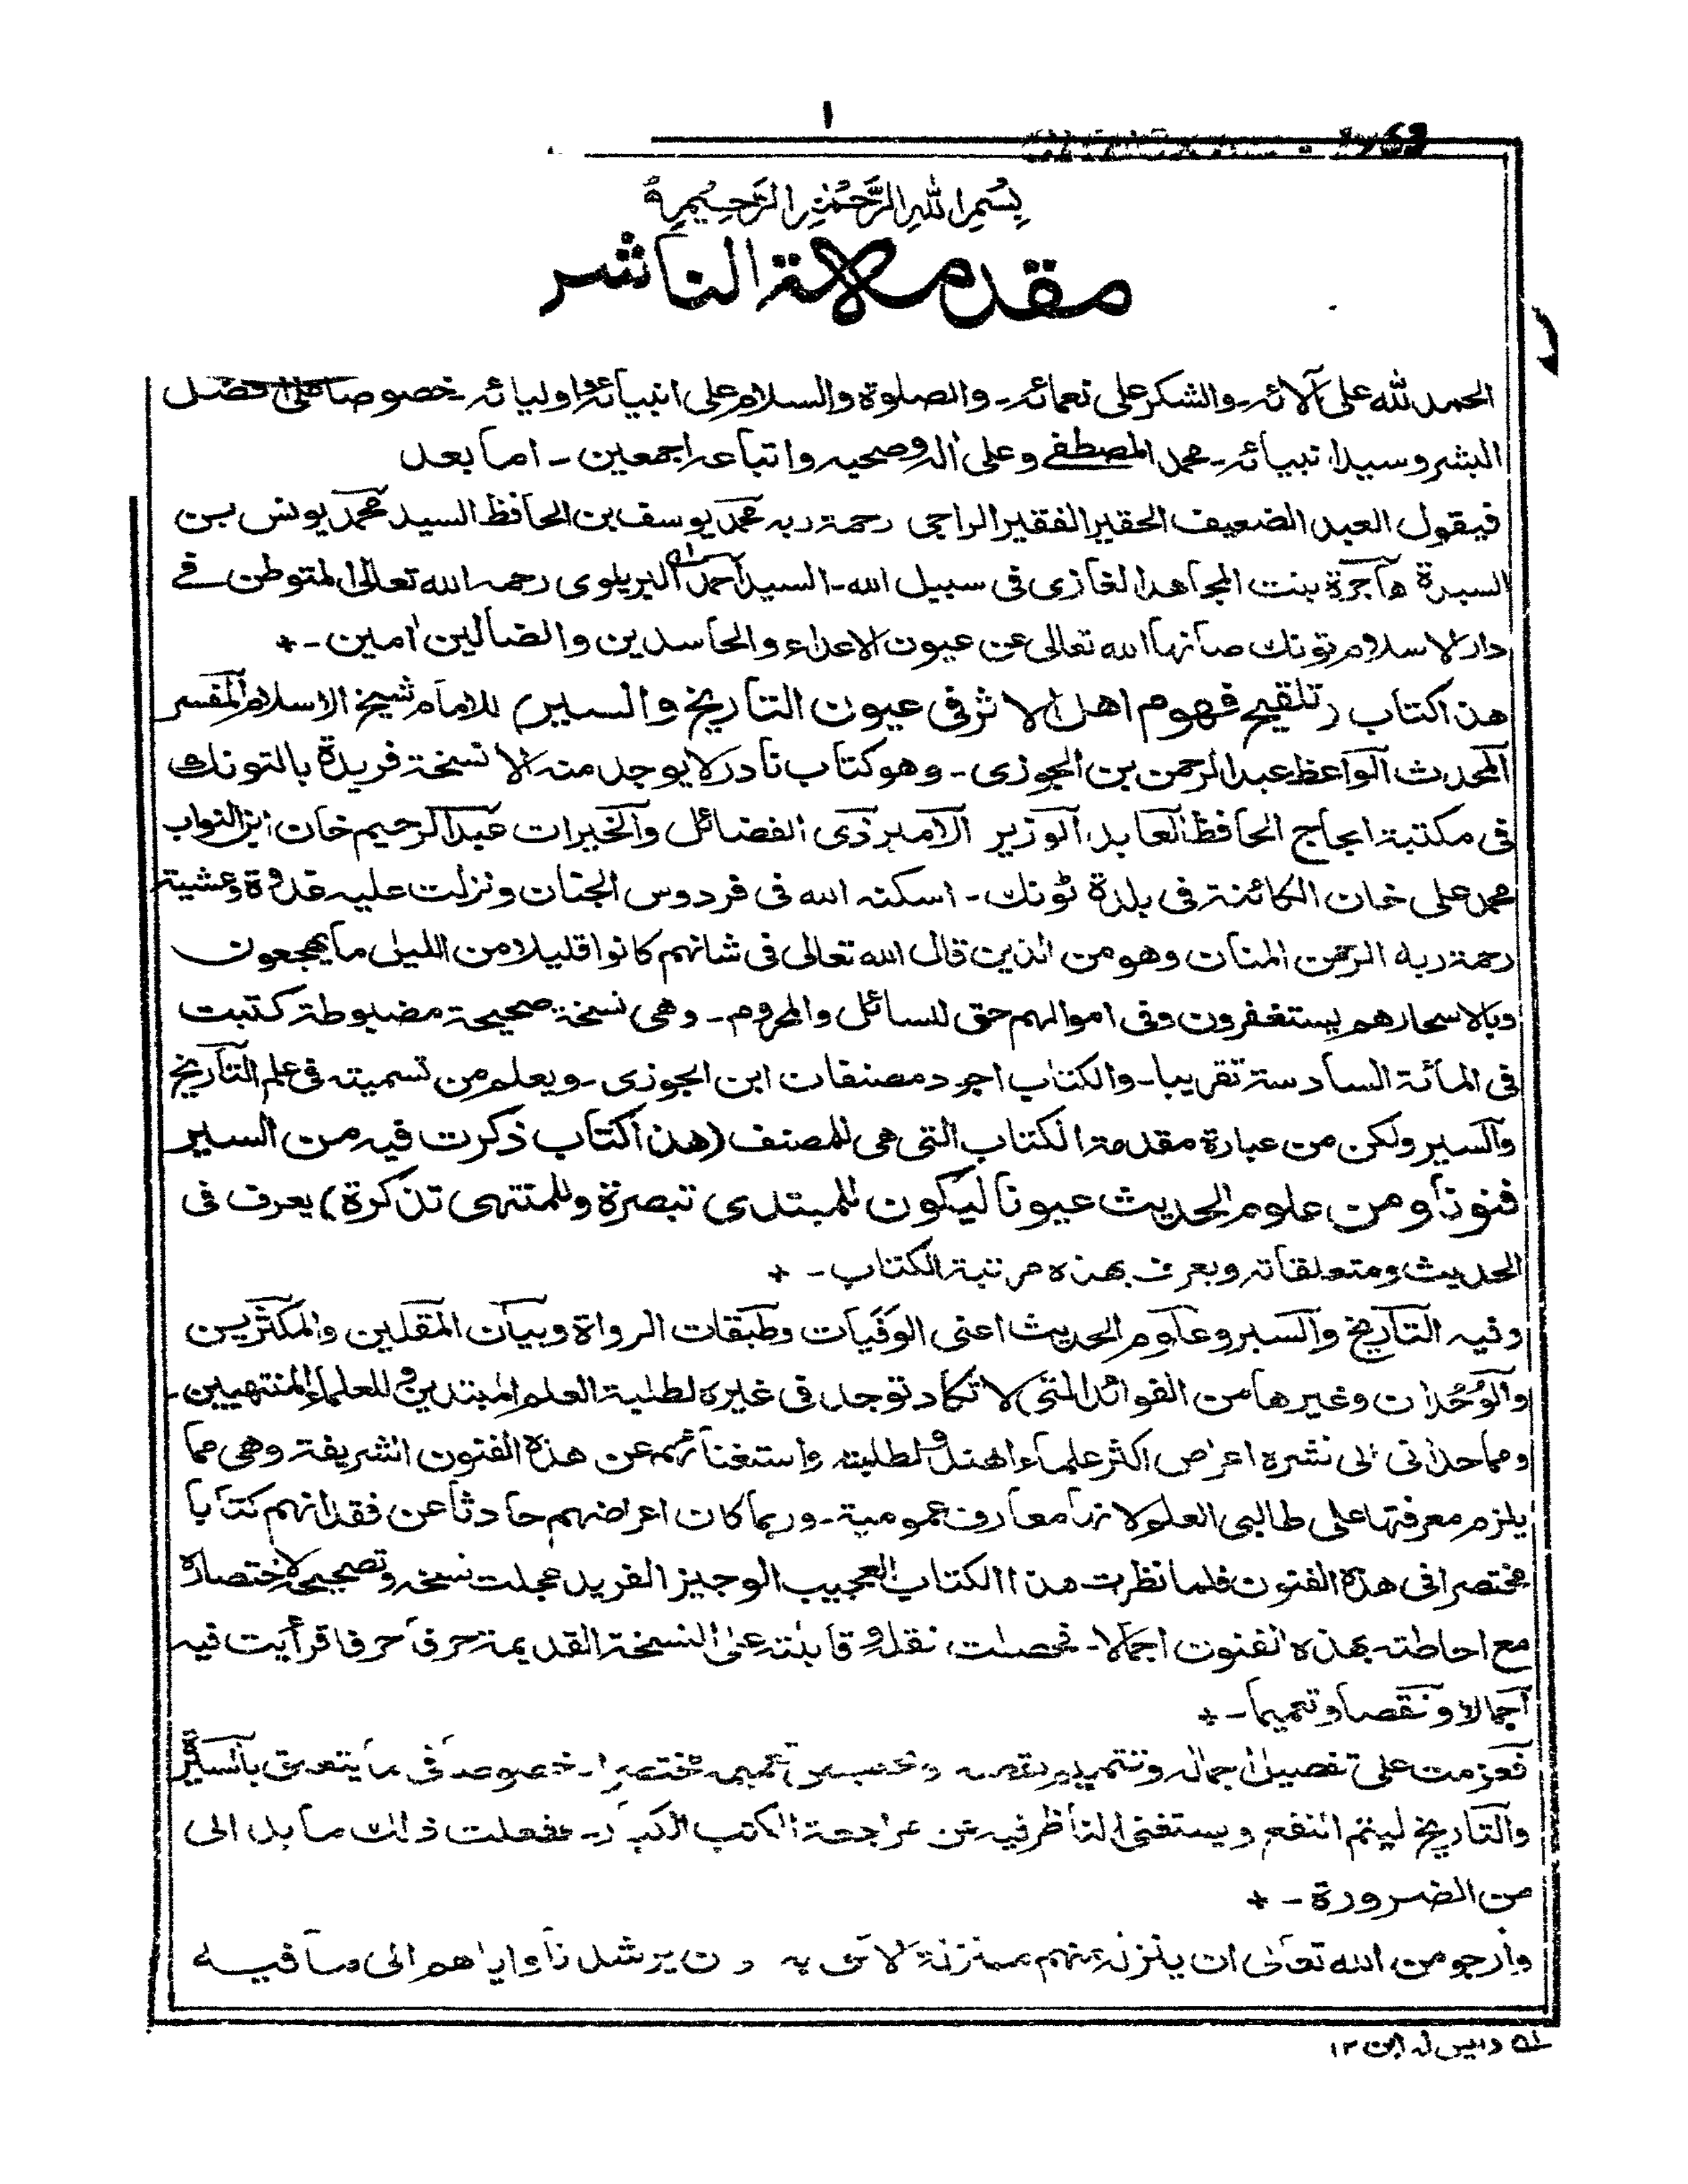 ١
بسم الله الرحمن الرحيم
مقدمة الناشر
الحمد لله على آلائه۔ والشكر على نعمائه۔ والصلوة والسلام على انبيائه واوليائه۔ خصوصا على افضل
البشر وسيد انبيائه۔ محمد المصطفے وعلى اٰله وصحبه واتباعه اجمعين۔ اما بعد
فيقول العبد الضعيف الحقير الفقير الراجى رحمة ربه محمد يوسف بن الحافظ السيد محمد يونس بن
السيدة هاجرة بنت المجاهد الغازى فى سبيل الله۔ السيد احمد البريلوى رحمه الله تعالى المتوطن فے
دار الاسلام تونك صانها الله تعالى عن عيون الاعداء والحاسدين والضالين اٰمين۔ +
هذا كتاب (تلقيح فهوم اهل الاثر فى عيون التاريخ والسير) للامام شيخ الاسلام المفسر
المحدث الواعظ عبد الرحمن بن الجوزى۔ وهو كتاب نادر لا يوجد منه الا نسخة فريدة بالتونك
فى مكتبة الحاج الحافظ العابد الوزير الامير ذى الفضائل والخيرات عبد الرحيم خان ابن النواب
محمد على خان الكائنة فى بلدة ٹونك۔ اسكنه الله فى فردوس الجنان ونزلت عليه غدوة وعشية
رحمة ربه الرحمن المنان وهو من الذين قال الله تعالى فى شانهم كانوا قليلا من الليل ما يهجعون
وبالاسحار هم يستغفرون وفى اموالهم حق للسائل والمحروم۔ وهى نسخة صحيحة مضبوطة كتبت
فى المائة السادسة تقريبا۔ والكتاب اجود مصنفات ابن الجوزى۔ ويعلم من تسميته فى علم التاريخ
والسير ولكن من عبارة مقدمة الكتاب التى هى للمصنف (هذا كتاب ذكرت فيه من السير
فنونا ومن علوم الحديث عيونا ليكون للمبتدى تبصرة وللمنتهى تذكرة) يعرف فى
الحديث ومتعلقاته ويعرف بهذه مرتبة الكتاب۔ +
وفيه التاريخ والسير وعلوم الحديث اعنى الوَفَيات وطبقات الرواة وبيان المقلين والمكثرين
والوُحُدان وغيرها من الفوائد التى لا تكاد توجد فى غيره لطلبة العلم المبتدين وللعلماء المنتهيين۔
ومما حدانى الى نشره اعراض اكثر علماء الهند وطلبته واستغنائهم عن هذه الفنون الشريفة وهى مما
يلزم معرفتها على طالبى العلم لانها معارف عمومية۔ وربما كان اعراضهم حادثا عن فقدانهم كتابا
مختصرا فى هذه الفنون فلما نظرت هذا الكتاب العجيب الوجيز الفريد عجلت نسخه وتصحيحه لاختصاره
مع احاطته بهذه الفنون اجمالا۔ فحصلت نقله وقابلته على النسخة القديمة حرفا حرفا فرأيت فيه
اجمالا ونقصا وتعميما۔ +
فعزمت على تفصيل اجماله وتتميم نقصه وتخصيص تعميمه مختصرا۔ خصوصا فى ما يتعلق بالسير
والتاريخ ليتم النفع ويستغنى الناظر فيه عن مراجعة الكتب الكبار۔ ففعلت ذلك ما بدا لى
من الضرورة۔ +
وارجو من الله تعالى ان ينزله منهم بمنزلة لائق به وان يرشدنا واياهم الى ما فيه
له وليس له ابن ١٢